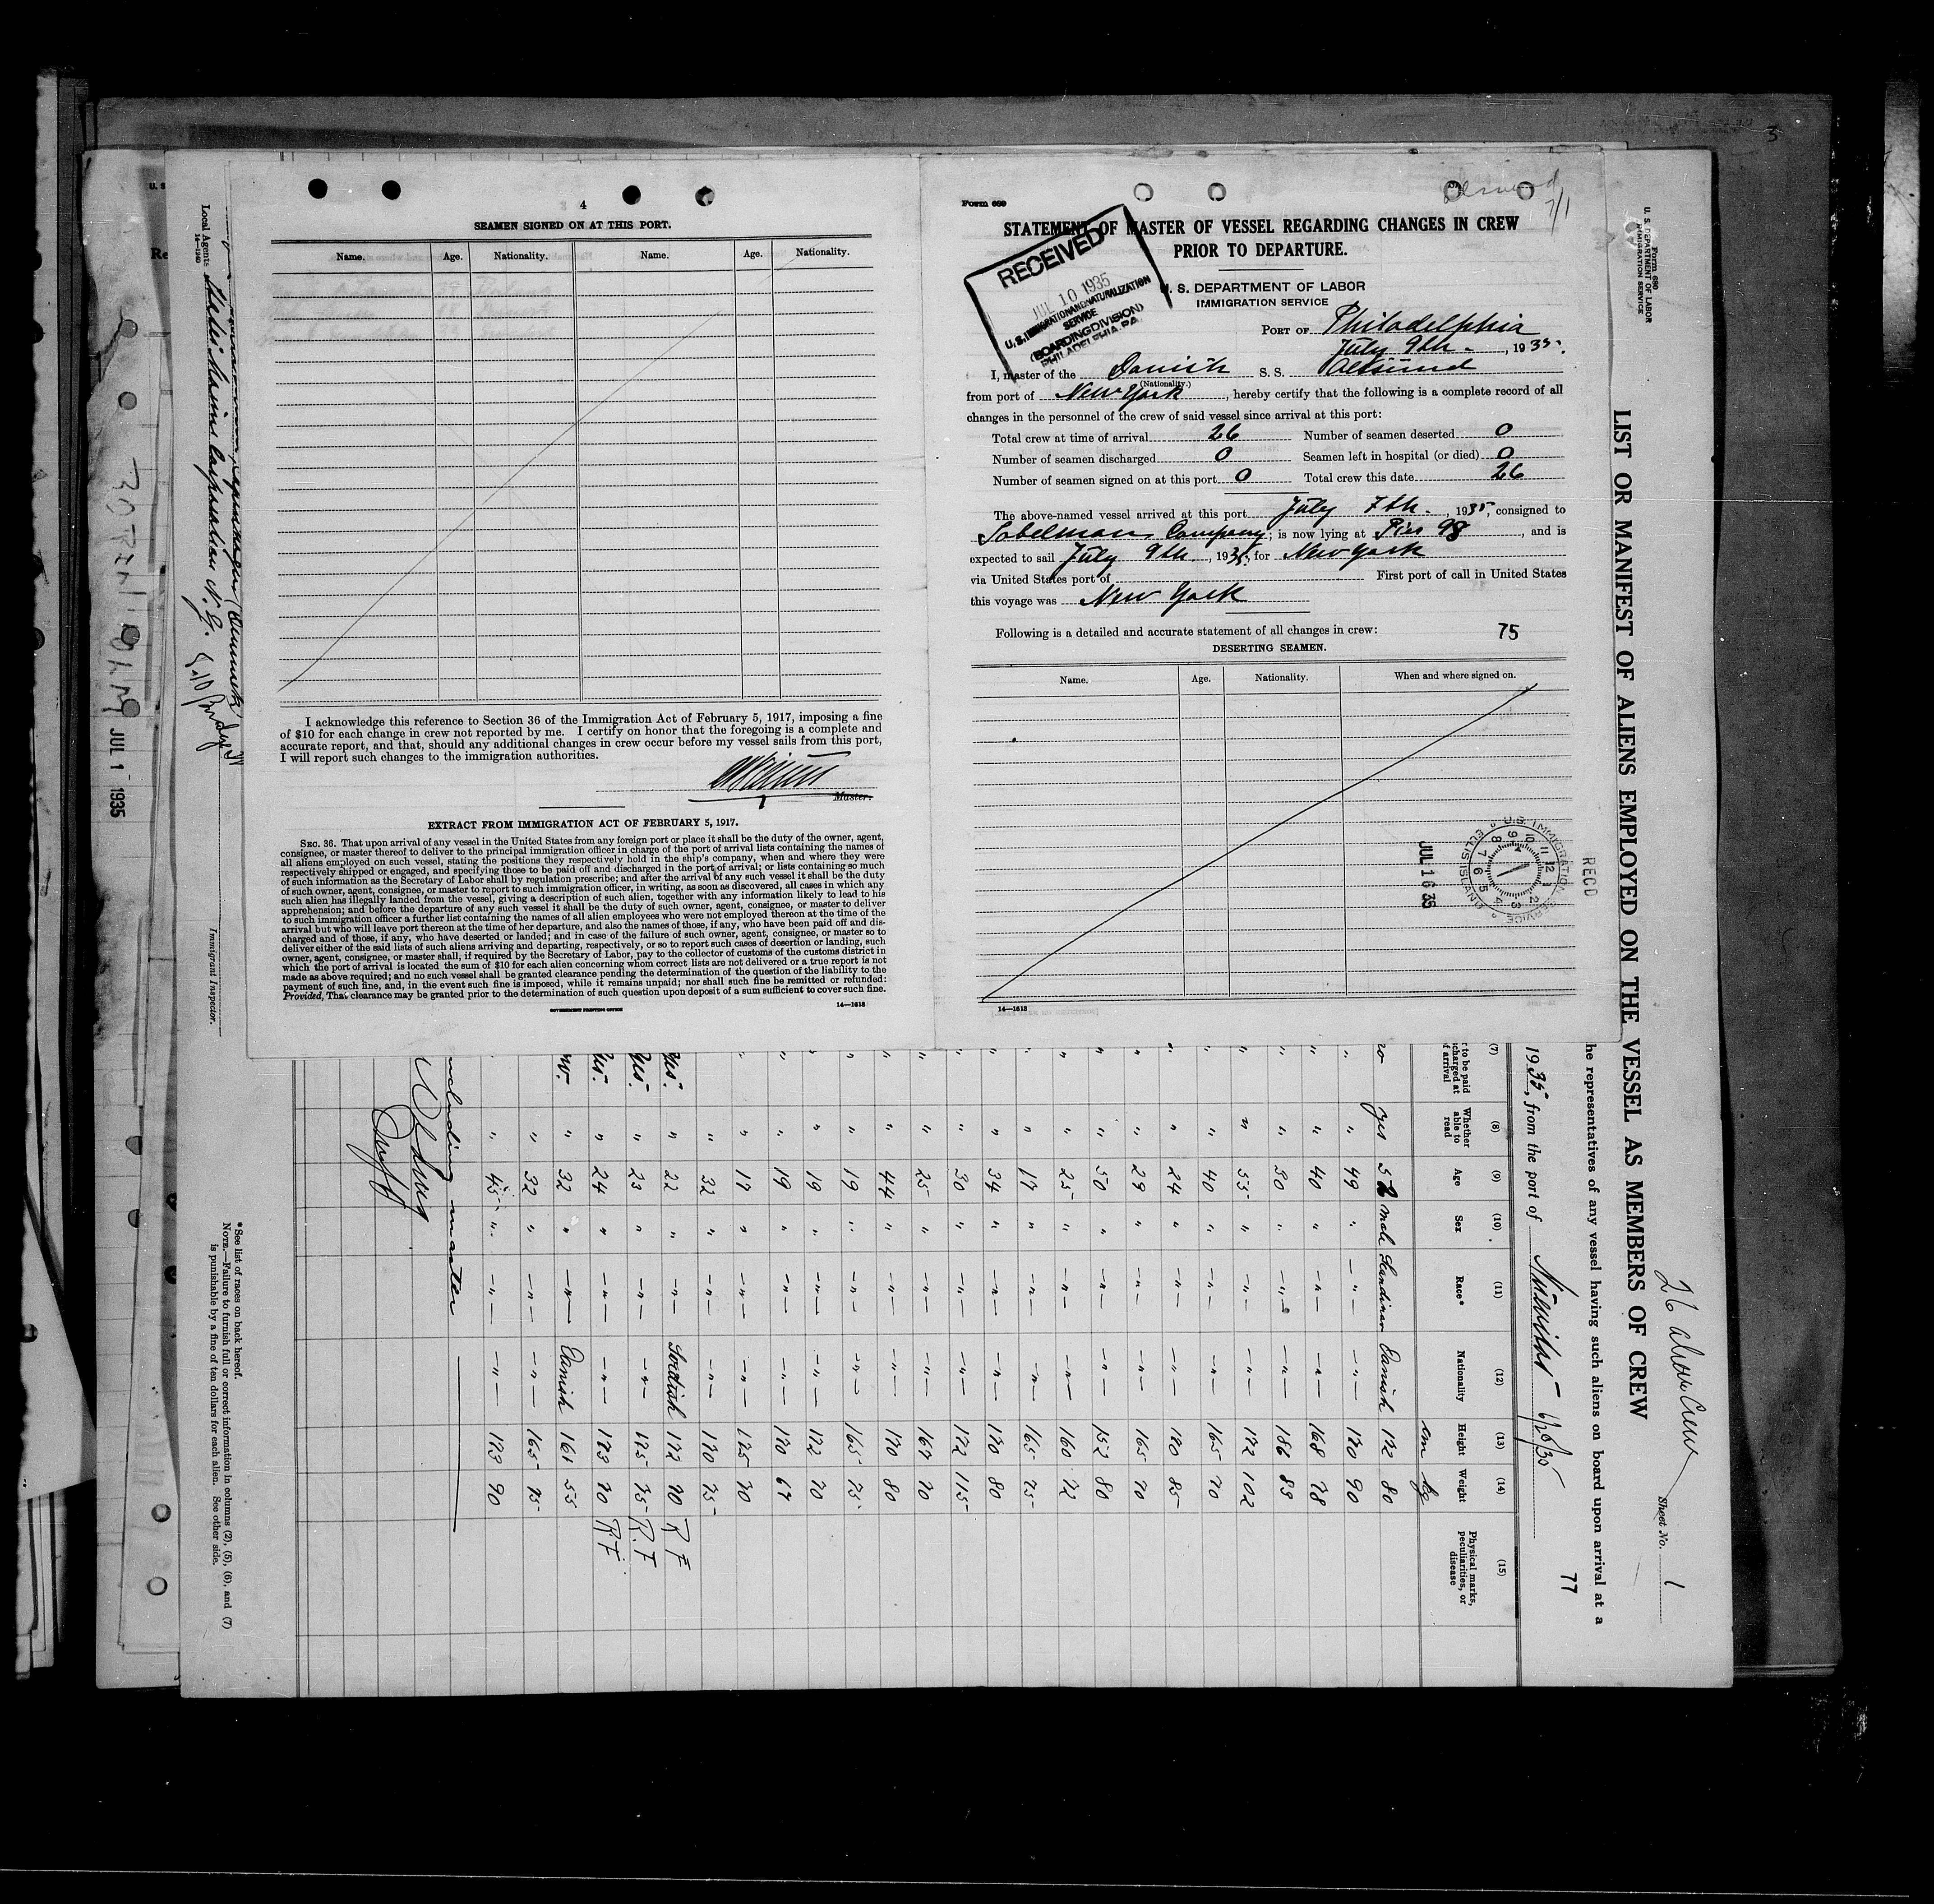 4
SEAMEN SIGNED ON AT THIS PORT.
Name. Age. Nationality. Name. Age. Nationality.
I acknowledge this reference to Section 36 of the Immigration Act of February 5, 1917, imposing a fine
of $10 for each change in crew not reported by me. I certify on honor that the foregoing is a complete and
accurate report, and that, should any additional changes in crew occur before my vessel sails from this port,
I will report such changes to the immigration authorities.
Master.
EXTRACT FROM IMMIGRATION ACT OF FEBRUARY 5, 1917.
SEC. 36. That upon arrival of any vessel in the United States from any foreign port or place it shall be the duty of the owner, agent,
consignee, or master thereof to deliver to the principal immigration officer in charge of the port of arrival lists containing the names of
all aliens employed on such vessel, stating the positions they respectively hold in the ship's company, when and where they were
respectively shipped or engaged, and specifying those to be paid off and discharged in the port of arrival; or lists containing so much
of such information as the Secretary of Labor shall by regulation prescribe; and after the arrival of any such vessel it shall be the duty
of such owner, agent, consignee, or master to report to such immigration officer, in writing, as soon as discovered, all cases in which any
such alien has illegally landed from the vessel, giving a description of such alien, together with any information likely to lead to his
apprehension; and before the departure of any such vessel it shall be the duty of such owner, agent, consignee, or master to deliver
to such immigration officer a further list containing the names of all alien employees who were not employed thereon at the time of the
arrival but who will leave port thereon at the time of her departure, and also the names of those, if any, who have been paid off and dis-
charged and of those, if any, who have deserted or landed; and in case of the failure of such owner, agent, consignee, or master so to
deliver either of the said lists of such aliens arriving and departing, respectively, or so to report such cases of desertion or landing, such
owner, agent, consignee, or master shall, if required by the Secretary of Labor, pay to the collector of customs of the customs district in
which the port of arrival is located the sum of $10 for each alien concerning whom correct lists are not delivered or a true report is not
made as above required; and no such vessel shall be granted clearance pending the determination of the question of the liability to the
payment of such fine, and, in the event such fine is imposed, while it remains unpaid; nor shall such fine be remitted or refunded:
Provided, That clearance may be granted prior to the determination of such question upon deposit of a sum sufficient to cover such fine.
GOVERNMENT PRINTING OFFICE 14—1613
7/1
Form 689
STATEMENT OF MASTER OF VESSEL REGARDING CHANGES IN CREW
PRIOR TO DEPARTURE.
RECEIVED
JUL 10 1935
U.S. IMMIGRATION AND NATURALIZATION
SERVICE
(BOARDING DIVISION)
PHILADELPHIA, PA.
U. S. DEPARTMENT OF LABOR
IMMIGRATION SERVICE
PORT OF Philadelphia
July 9th - , 1935.
I, master of the Danish S. S.
(Nationality.)
from port of New York, hereby certify that the following is a complete record of all
changes in the personnel of the crew of said vessel since arrival at this port:
Total crew at time of arrival 26 Number of seamen deserted 0
Number of seamen discharged 0 Seamen left in hospital (or died) 0
Number of seamen signed on at this port 0 Total crew this date 26
The above-named vessel arrived at this port July 7th. , 1935, consigned to
Sobelman Company; is now lying at Pier 98, and is
expected to sail July 9th, 1935, for New York
via United States port of First port of call in United States
this voyage was New York
Following is a detailed and accurate statement of all changes in crew: 75
DESERTING SEAMEN.
Name. Age. Nationality. When and where signed on.
U.S. IMMIGRATION SERVICE ELLIS ISLAND
RECD
JUL 16 35
14—1613
Form 680
U. S. DEPARTMENT OF LABOR
IMMIGRATION SERVICE
LIST OR MANIFEST OF ALIENS EMPLOYED ON THE VESSEL AS MEMBERS OF CREW
26 Crew
Sheet No. 1
he representatives of any vessel having such aliens on board upon arrival at a
77
1935, from the port of
(7) (8) (9) (10) (11) (12) (13) (14) (15)
r to be paid
scharged at
f arrival
Whether
able to
read
Age
Sex
Race*
Nationality
Height
Weight
Physical marks,
peculiarities, or
disease
cm kg
yes 52 male Scandinav Danish 172 80
" 49 " —"— —"— 170 90
" 40 " —"— —"— 168 78
" 30 " —"— —"— 186 83
" 55 " —"— —"— 172 102
" 40 " —"— —"— 165 70
" 24 " —"— —"— 170 85
" 29 " —"— —"— 165 70
" 50 " —"— —"— 152 80
" 25 " —"— —"— 160 72
" 17 " —"— —"— 165 75
" 34 " —"— —"— 170 80
" 30 " —"— —"— 172 115
" 25 " —"— —"— 167 70
" 44 " —"— —"— 170 80
" 19 " —"— —"— 165 75
" 19 " —"— —"— 172 70
" 19 " —"— —"— 170 67
" 17 " —"— —"— 175 70
" 32 " —"— —"— 170 75
" 22 " —"— 172 70 R F
" 23 " —"— —"— 175 75 R.F
" 24 " —"— —"— 173 70 R.F.
" 32 " —"— Danish 161 55
" 32 " —"— —"— 165 75
" 45 " —"— —"— 173 90
including master
*See list of races on back hereof.
NOTE.—Failure to furnish full or correct information in columns (2), (5), (6), and (7)
is punishable by a fine of ten dollars for each alien. See other side.
Immigrant Inspector.
Local Agents
14—1240
JUL 1 1935
3